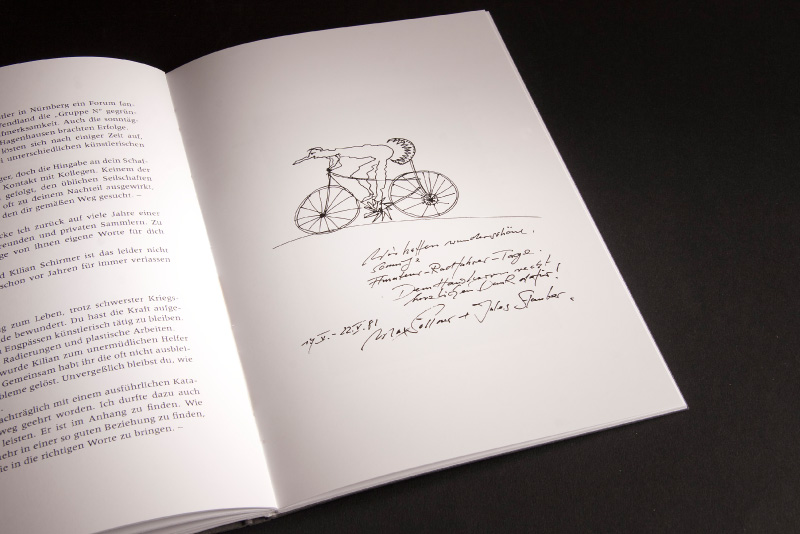 ler in Nürnberg ein Forum fan-
endland die „Gruppe N“ gegrün-
fmerksamkeit. Auch die sonntäg-
Hagenhausen brachten Erfolge.
lösten sich nach einiger Zeit auf,
i unterschiedlichen künstlerischen
ger, doch die Hingabe an dein Schaf-
Kontakt mit Kollegen. Keinem der
gefolgt, den üblichen Seilschaften
oft zu deinem Nachteil ausgewirkt,
den dir gemäßen Weg gesucht. –
cke ich zurück auf viele Jahre einer
reunden und privaten Sammlern. Zu
ge von ihnen eigene Worte für dich
d Kilian Schirmer ist das leider nicht
schon vor Jahren für immer verlassen
ng zum Leben, trotz schwerster Kriegs-
de bewundert. Du hast die Kraft aufge-
Engpässen künstlerisch tätig zu bleiben.
Radierungen und plastische Arbeiten.
wurde Kilian zum unermüdlichen Helfer
Gemeinsam habt ihr die oft nicht ausblei-
bleme gelöst. Unvergeßlich bleibst du, wie
achträglich mit einem ausführlichen Kata-
weg geehrt worden. Ich durfte dazu auch
leisten. Er ist im Anhang zu finden. Wie
ehr in einer so guten Beziehung zu finden,
ie in die richtigen Worte zu bringen. –
Wir hatten wunderschöne,
sonnige
Amateur-Radfahrer-Tage.
Dem Hausherrn recht
herzlichen Dank dafür!
- 22.V.81
Max + Jules Stauber.